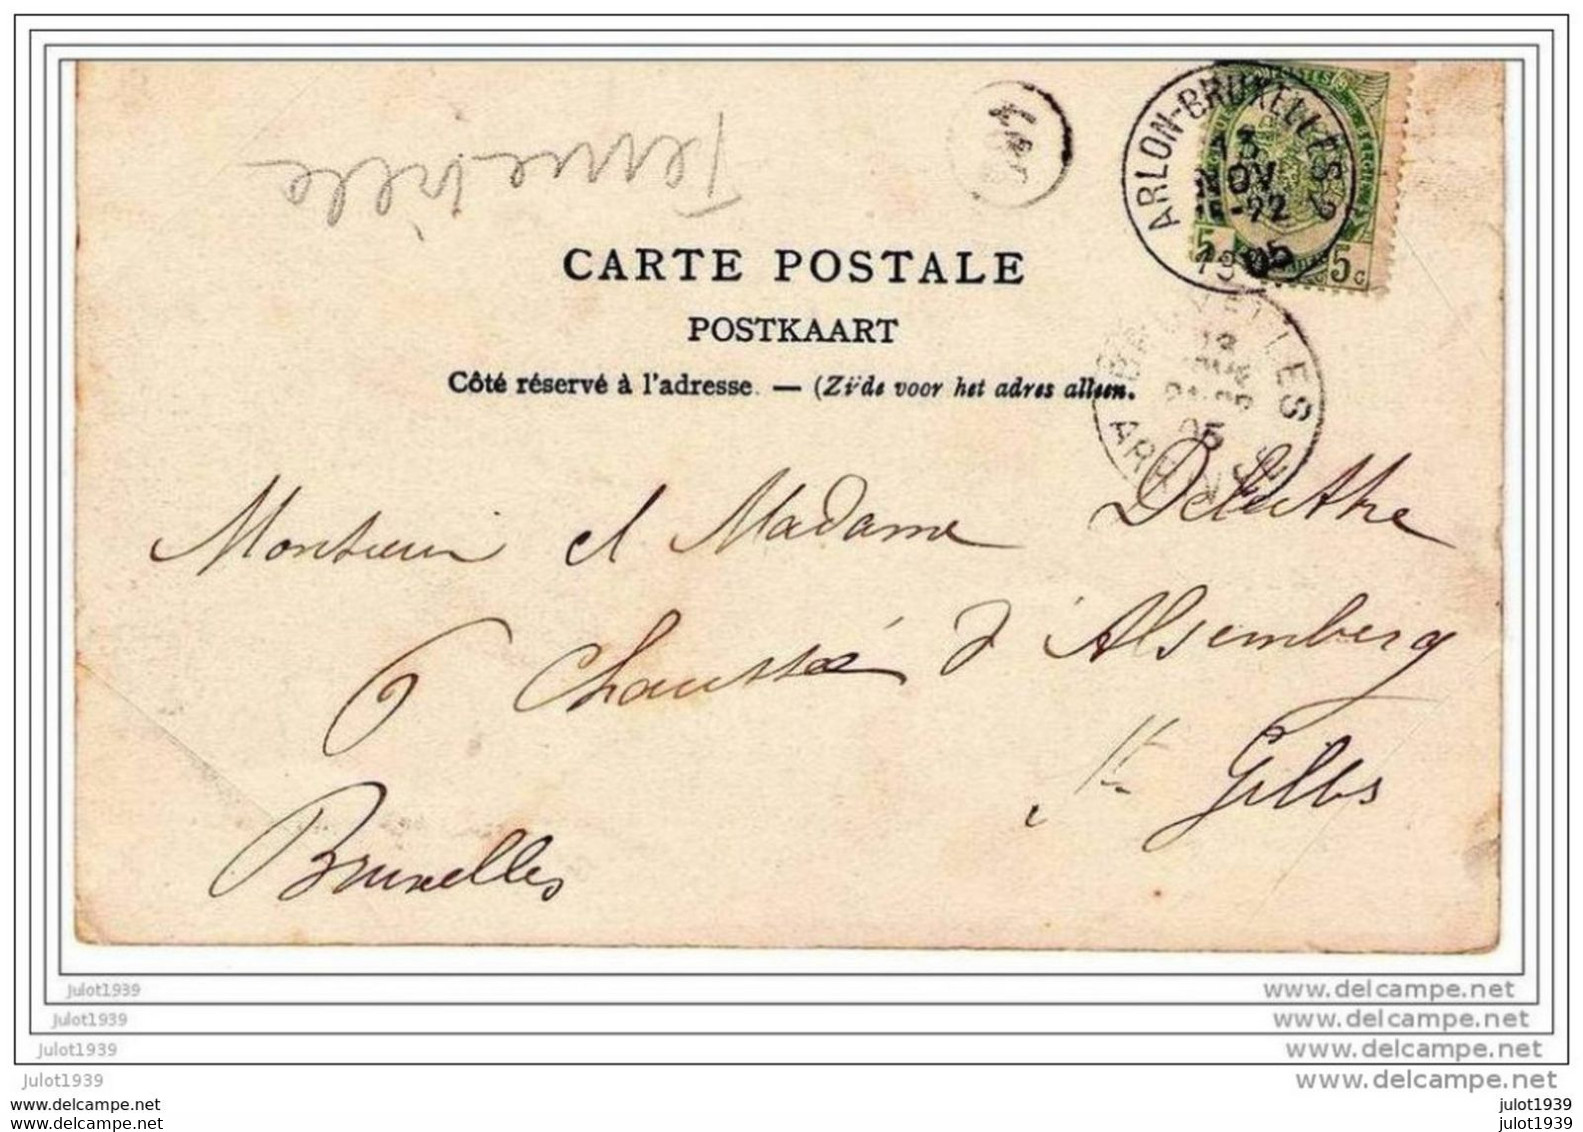 ARLON-BRUXELLES 2
13
NOV
-22
1905
5 5c
CARTE POSTALE
POSTKAART
Côté réservé à l'adresse. — (Zijde voor het adres alleen.
BRUXELLES
13
05
Monsieur et Madame
6 Chaussée d'Alsemberg
St Gilles
Bruxelles
julot1939 www.delcampe.net
julot1939 www.delcampe.net
julot1939 www.delcampe.net
julot1939 www.delcampe.net
julot1939 julot1939
julot1939 julot1939